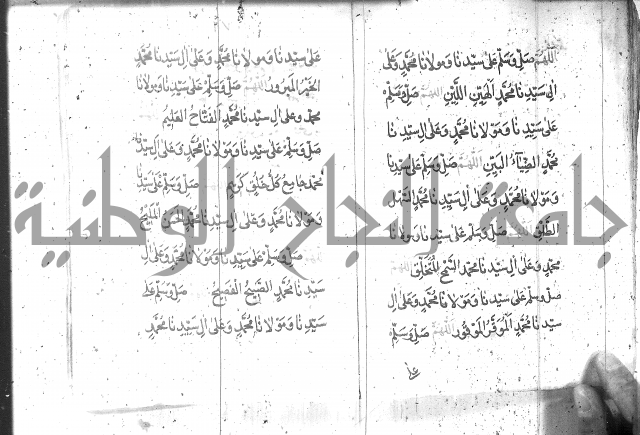 اللهم صل وسلم على سيدنا ومولانا محمد وعلى
ال سيدنا محمد الهين اللين اللهم صل وسلم
على سيدنا ومولانا محمد وعلى ال سيدنا
محمد الضياء المبين اللهم صل وسلم على سيدنا
ومولانا محمد وعلى ال سيدنا محمد السهل
الطلق اللهم صل وسلم على سيدنا ومولانا
محمد وعلى ال سيدنا محمد السمح
صل وسلم على سيدنا ومولانا محمد وعلى ال
سيدنا محمد الموقر الموفود اللهم صل وسلم
على سيدنا ومولانا محمد وعلى ال سيدنا محمد
الخير المبرور اللهم صل وسلم على سيدنا ومولانا
محمد وعلى ال سيدنا محمد الفتاح العليم
صل وسلم على سيدنا ومولانا محمد وعلى ال سيدنا
محمد جامع كل خلق كريم صل وسلم على سيدنا
ومولانا محمد وعلى ال سيدنا محمد
صل وسلم على سيدنا ومولانا محمد وعلى ال
سيدنا محمد الصبيح الفصيح صل وسلم على
سيدنا ومولانا محمد وعلى ال سيدنا محمد
جامعة النجاح الوطنية